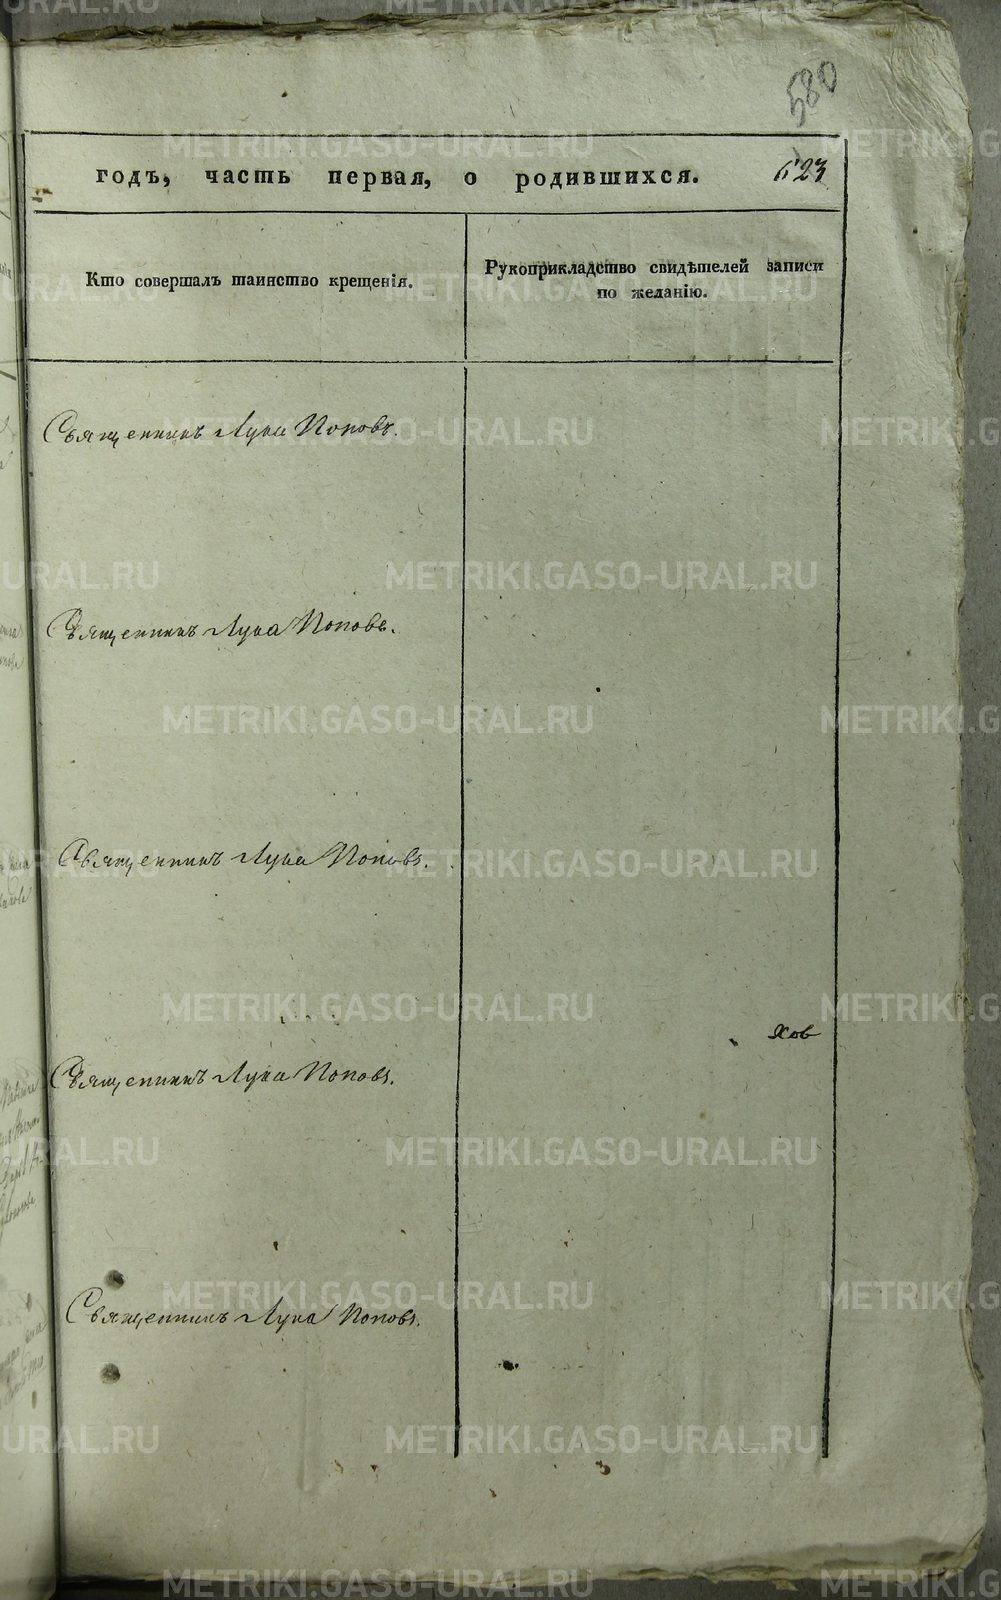 580
годъ, часть первая, о родившихся. 623
Кто совершалъ таинство крещенія.
Рукоприкладство свидѣтелей записи
по желанію.
Священникъ Лука Поповъ.
Священникъ Лука Поповъ.
Священникъ Лука Поповъ.
хов
Священникъ Лука Поповъ.
Священникъ Лука Поповъ.
METRIKI.GASO-URAL.RU